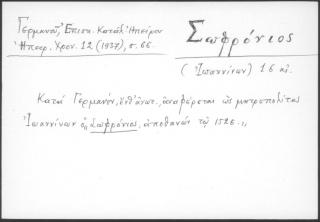 Γερμανοῦ, Ἐπισκ. Κατάλ. Ἠπείρου
Ἠπειρ. Χρον. 12 (1937), σ. 66.
Σωφρόνιος
(Ἰωαννίνων) 16 αἰ.
Κατά Γερμανόν, ἀναφέρεται ὡς μητροπολίτης
Ἰωαννίνων ὁ Σωφρόνιος, ἀποθανών τῷ 1526